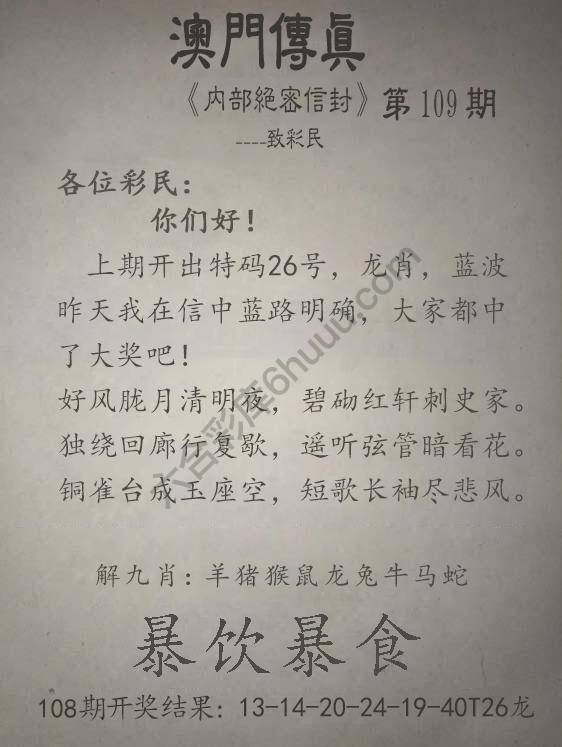 澳門傳眞
《内部絕密信封》第109期
----致彩民
各位彩民：
你们好！
上期开出特码26号，龙肖，蓝波
昨天我在信中蓝路明确，大家都中
了大奖吧！
好风胧月清明夜，碧砌红轩刺史家。
独绕回廊行复歇，遥听弦管暗看花。
铜雀台成玉座空，短歌长袖尽悲风。
解九肖：羊猪猴鼠龙兔牛马蛇
暴饮暴食
108期开奖结果：13-14-20-24-19-40T26龙
六合彩库6huuu.com